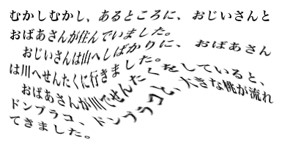 むかしむかし、あるところに、おじいさんと
おばあさんが住んでいました。
おじいさんは山へしばかりに、おばあさん
は川へせんたくに行きました。
おばあさんが川でせんたくをしていると、
ドンブラコ、ドンブラコと、大きな桃が流れ
てきました。